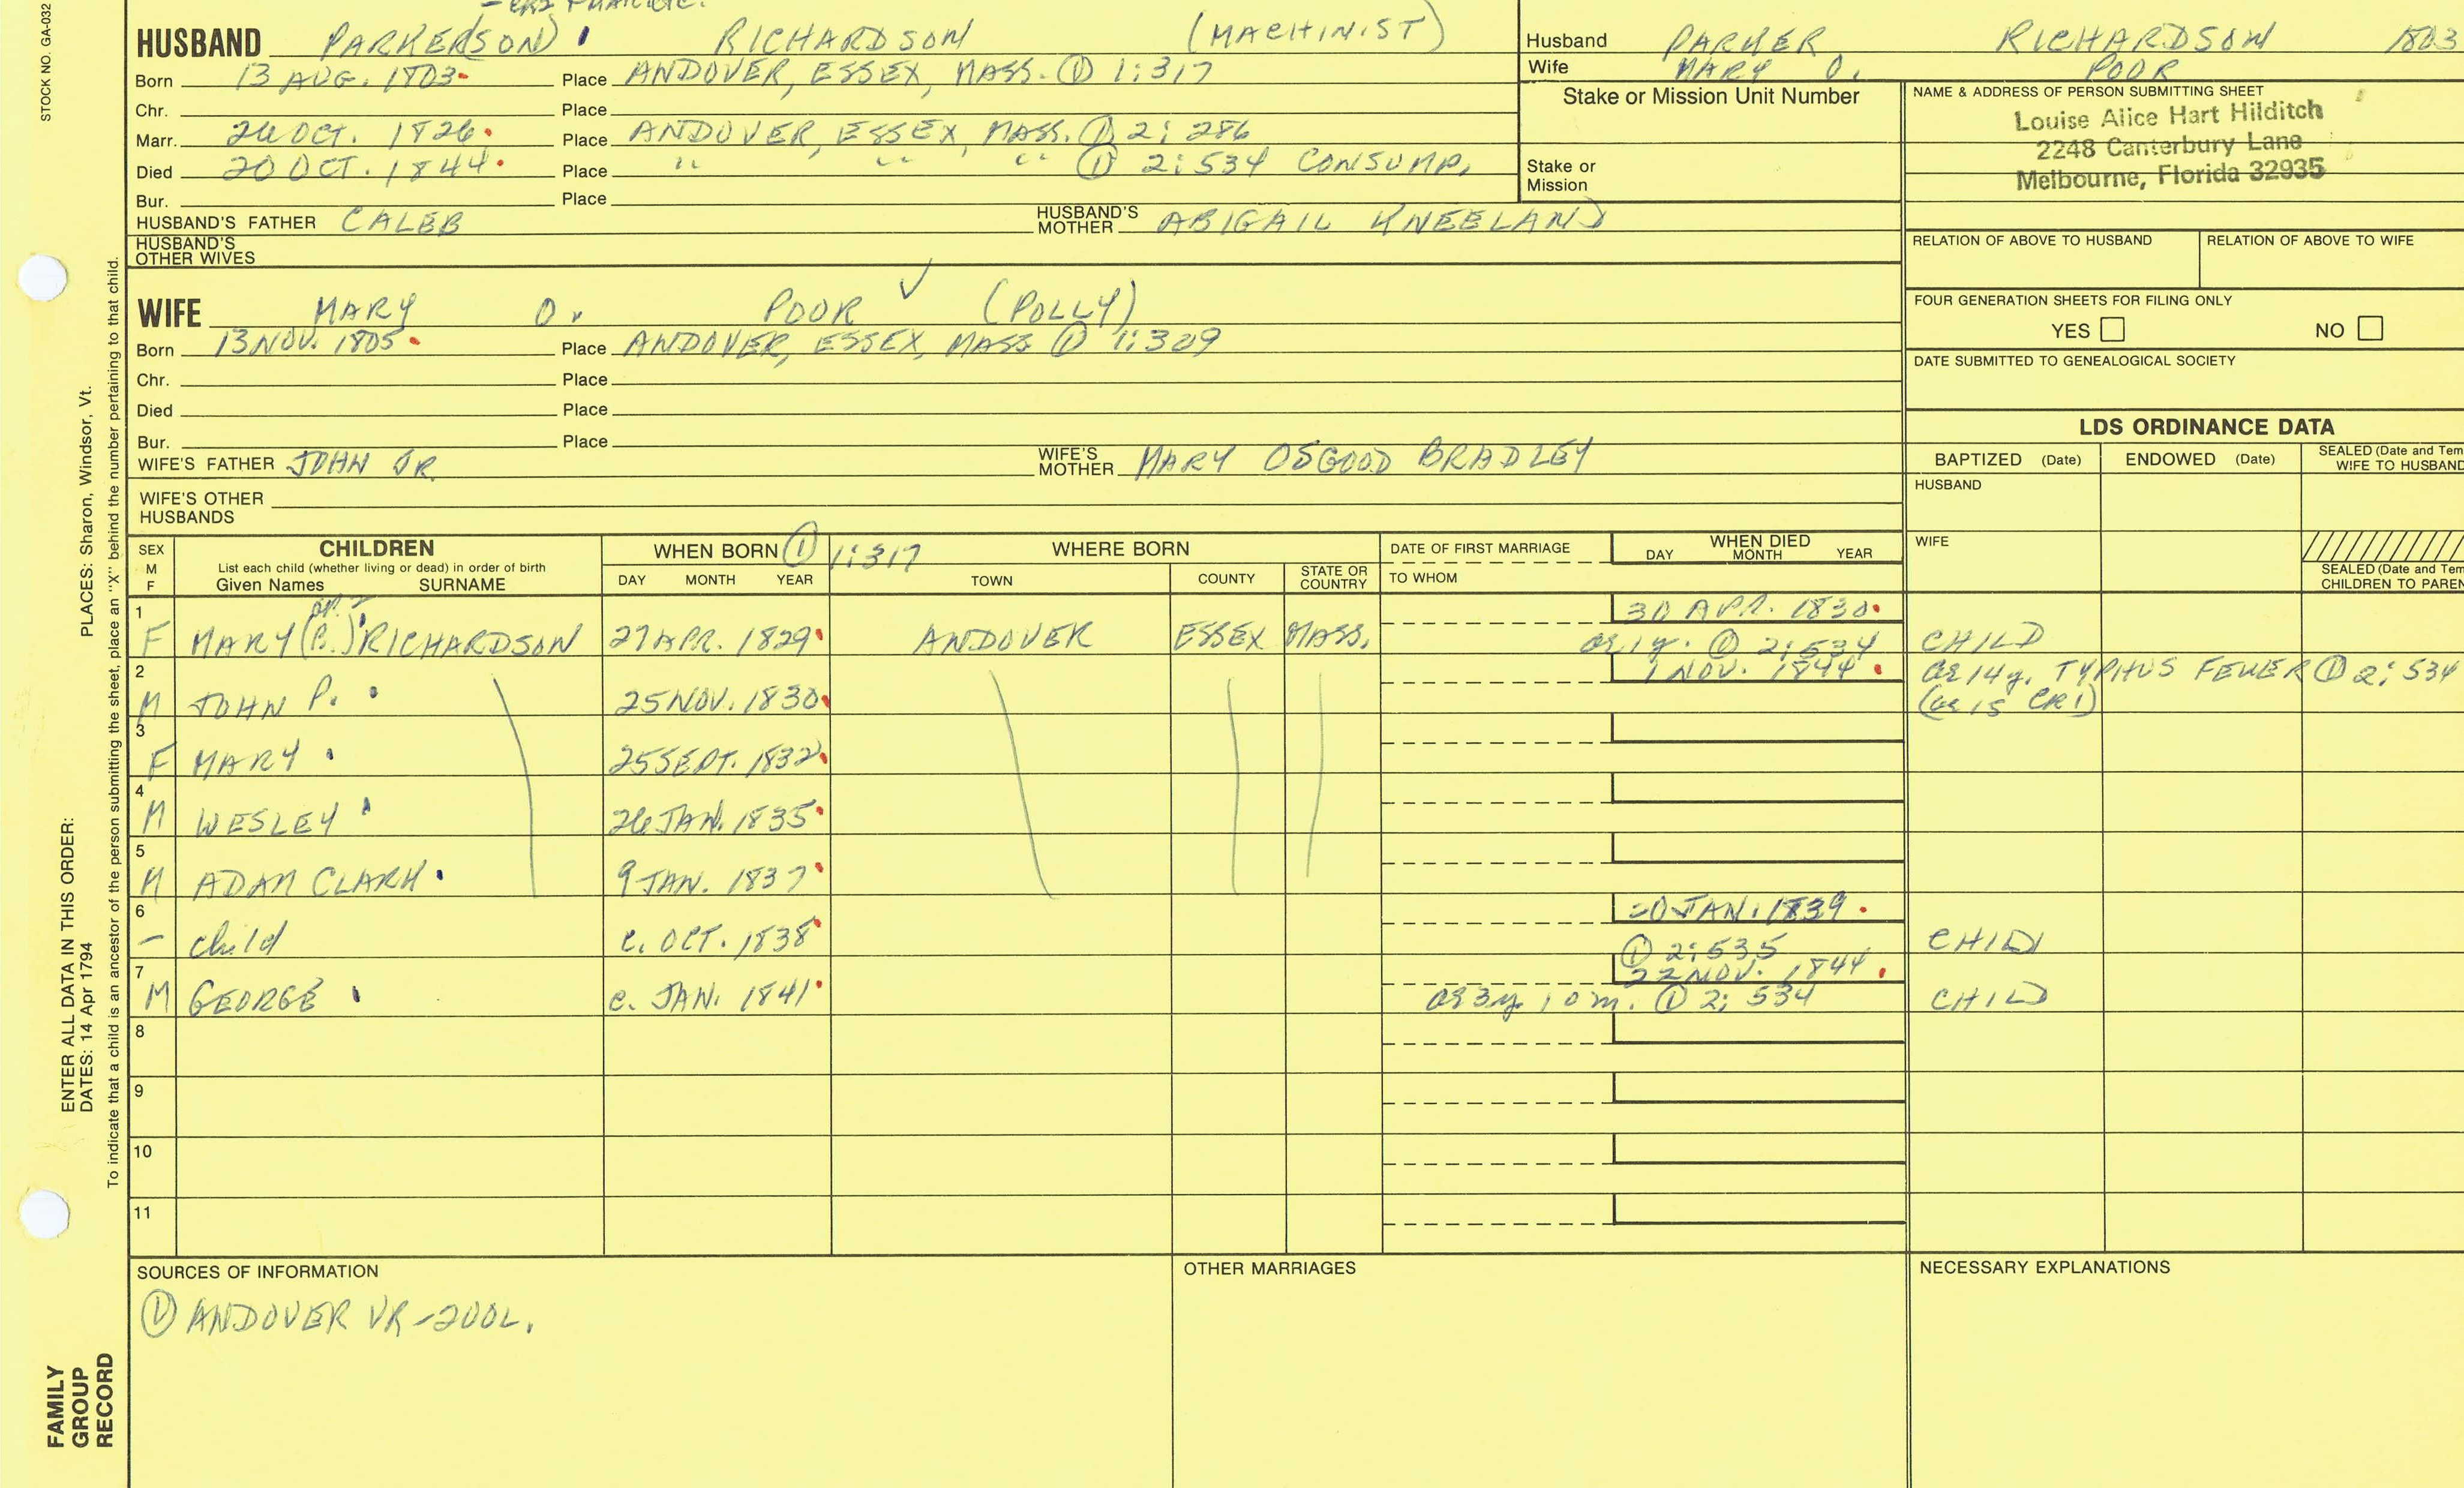 STOCK NO. GA-032
HUSBAND PARKER(SON) RICHARDSON (MACHINIST)
Born 13 AUG. 1803 Place ANDOVER, ESSEX, MASS. ① 1:317
Chr. Place
Marr. 26 OCT. 1826 Place ANDOVER, ESSEX, MASS. ① 2:286
Died 20 OCT. 1844 Place " " " ① 2:534 CONSUMP.
Bur. Place
HUSBAND'S FATHER CALEB HUSBAND'S MOTHER ABIGAIL KNEELAND
HUSBAND'S OTHER WIVES
WIFE MARY O. POOR ✓ (POLLY)
Born 13 NOV. 1805 Place ANDOVER, ESSEX, MASS ① 1:309
Chr. Place
Died Place
Bur. Place
WIFE'S FATHER JOHN JR. WIFE'S MOTHER MARY OSGOOD BRADLEY
WIFE'S OTHER HUSBANDS
Husband PARKER RICHARDSON 1803
Wife MARY O. POOR
Stake or Mission Unit Number
Stake or Mission
NAME & ADDRESS OF PERSON SUBMITTING SHEET
Louise Alice Hart Hilditch
2248 Canterbury Lane
Melbourne, Florida 32935
RELATION OF ABOVE TO HUSBAND RELATION OF ABOVE TO WIFE
FOUR GENERATION SHEETS FOR FILING ONLY
YES NO
DATE SUBMITTED TO GENEALOGICAL SOCIETY
LDS ORDINANCE DATA
BAPTIZED (Date) ENDOWED (Date) SEALED (Date and Tem
WIFE TO HUSBAND
HUSBAND
WIFE
SEALED (Date and Tem
CHILDREN TO PAREN
SEX M F CHILDREN WHEN BORN ① 1:317 WHERE BORN DATE OF FIRST MARRIAGE WHEN DIED
List each child (whether living or dead) in order of birth
Given Names SURNAME DAY MONTH YEAR TOWN COUNTY STATE OR COUNTRY TO WHOM DAY MONTH YEAR
1 30 APR. 1830
F MARY (P.) RICHARDSON 27 APR. 1829 ANDOVER ESSEX MASS. ae 1y. ① 2:534 CHILD
2 1 NOV. 1844 ae 14y. TYPHUS FEVER ① 2:534
M JOHN P. 25 NOV. 1830 (ae 15 CR1)
3
F MARY 25 SEPT. 1832
4
M WESLEY 26 JAN. 1835
5
M ADAM CLARK 9 JAN. 1837
6 20 JAN. 1839
- child c. OCT. 1838 ① 2:535 CHILD
7 22 NOV. 1844
M GEORGE c. JAN. 1841 ae 3y. 10 m. ① 2:534 CHILD
8
9
10
11
SOURCES OF INFORMATION
① ANDOVER VR-2VOL.
OTHER MARRIAGES
NECESSARY EXPLANATIONS
ENTER ALL DATA IN THIS ORDER:
PLACES: Sharon, Windsor, Vt.
DATES: 14 Apr 1794
To indicate that a child is an ancestor of the person submitting the sheet, place an "X" behind the number pertaining to that child.
FAMILY
GROUP
RECORD